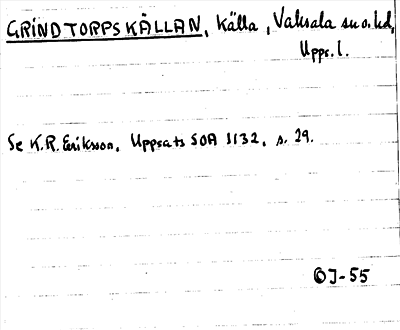 GRINDTORPSKÄLLAN, källa, Vaksala sn o. hd,
Upps. l.
Se K.R. Eriksson, Uppsats SOA 1132, s. 29.
OJ-55